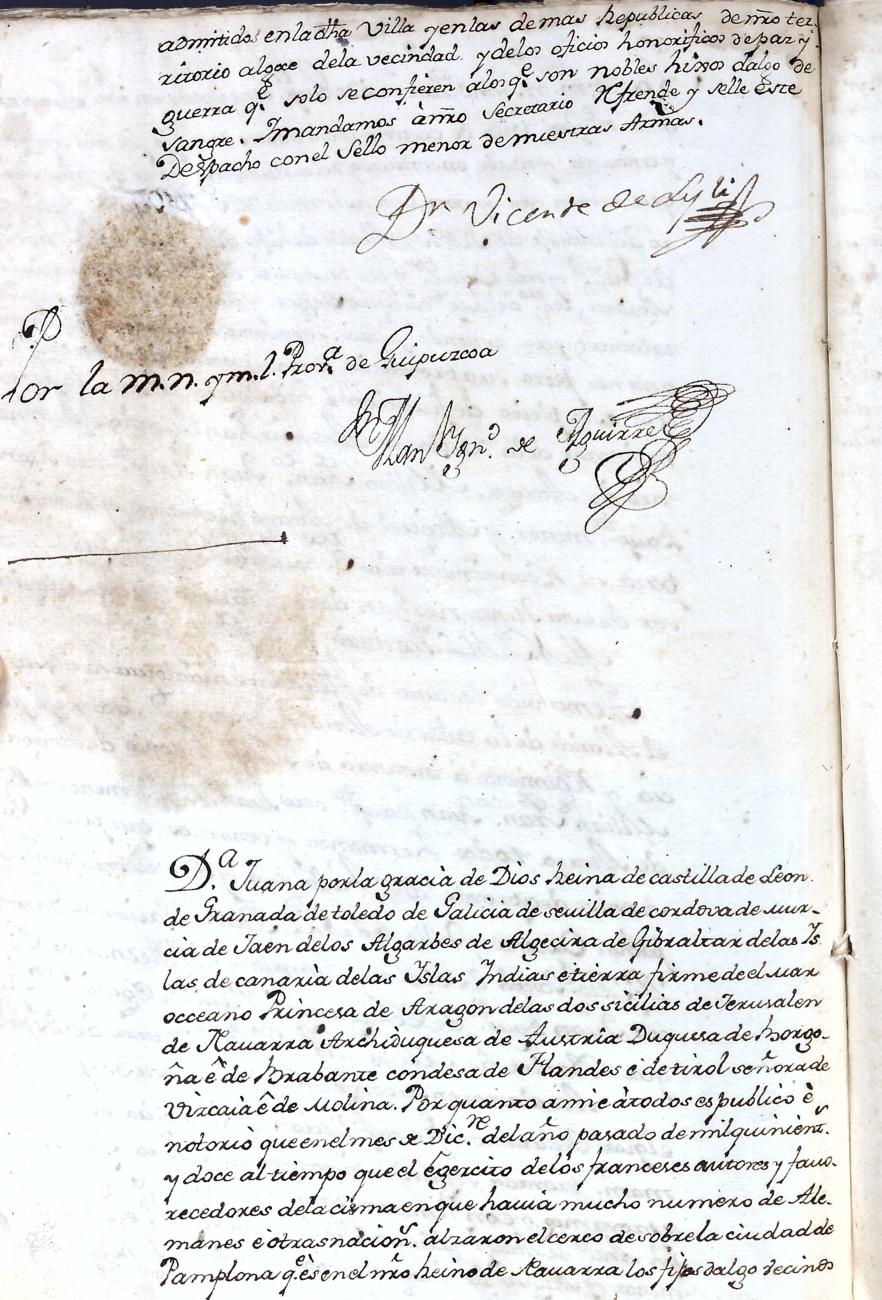 admitidos en la dha Villa y en las demas Republicas de nro ter-
ritorio al goce de la vecindad y delos oficios honorificos de paz y
guerra qe solo se confieren alos qe son nobles hixos dalgo de
sangre. Y mandamos à nro Secretario Refrende y selle este
Despacho con el Sello menor de nuestras Armas.
Dn Vicente de
Por la m.n. y m.l. Prova de Guipuzcoa
Dn Man Ygno. de Aguirre
D.a Juana por la gracia de Dios Reina de castilla de Leon.
de Granada de toledo de Galicia de sevilla de cordova de Mur-
cia de Jaen delos Algarbes de Algecira de Gibraltar delas Is
las de canaria delas Islas Indias e tierra firme de el mar
occeano Princesa de Aragon delas dos sicilias de Jerusalen
de Navarra Archiduquesa de Austria Duquesa de Borgo-
ña ê de Brabante condesa de Flandes é de tirol señora de
Vizcaia ê de Molina. Por quanto a mi e à todos es publico è
notorio que en el mes de Dic.re del año pasado de mil quinient.s
y doce al tiempo que el egercito delos franceses autores y favo-
recedores dela cisma en que havia mucho numero de Ale-
manes é otras nacion.s alzaron el cerco de sobre la ciudad de
Pamplona qe es en el nro Reino de Navarra los fijosdalgo vecinos